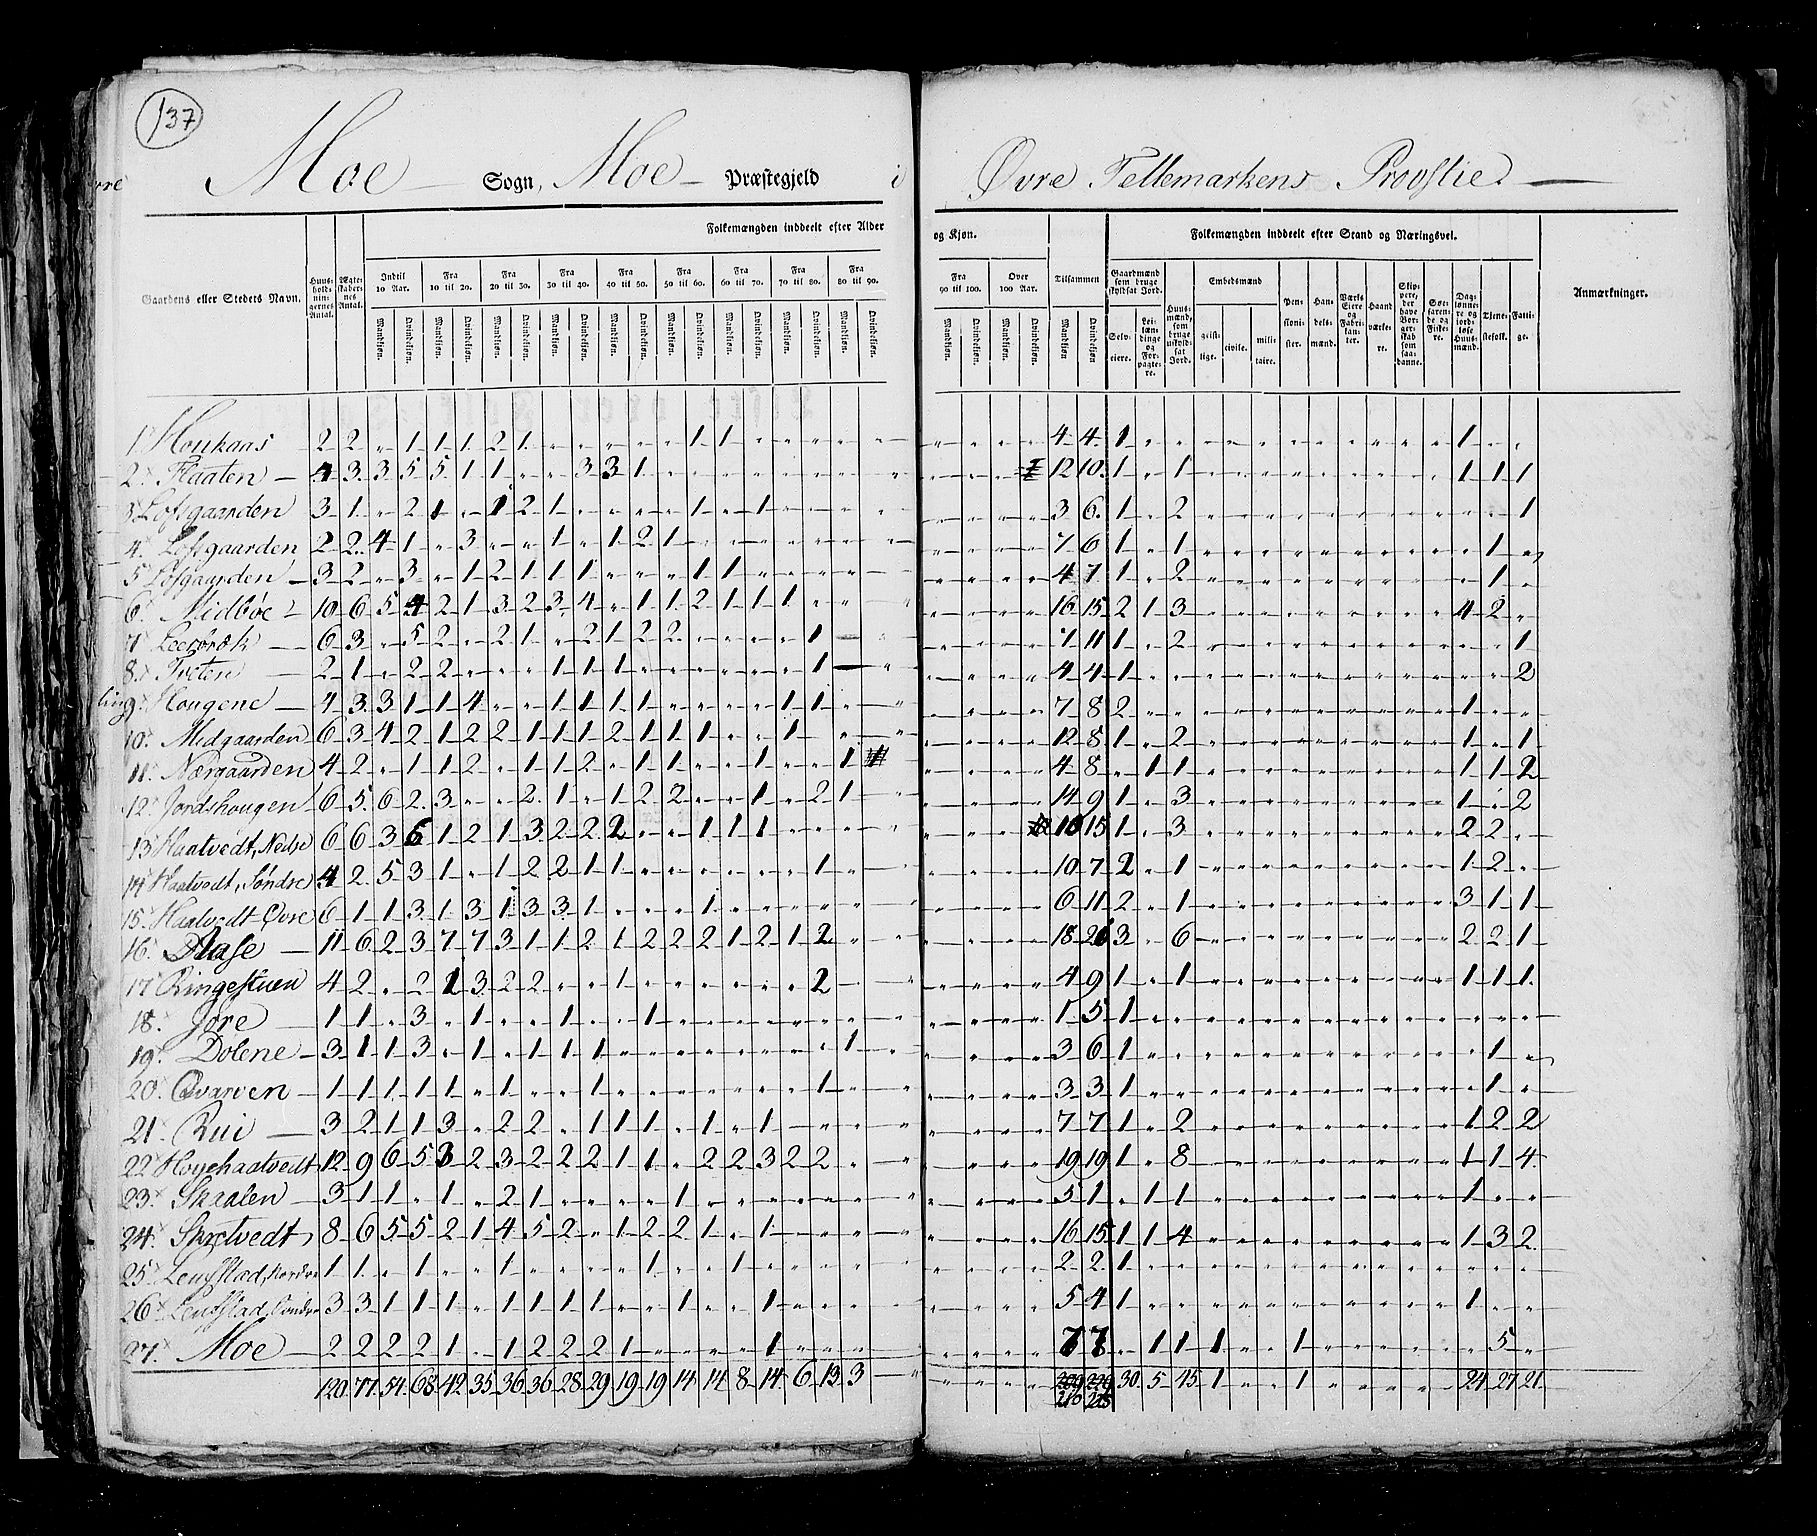 137
Moe Sogn, Moe Præstegjeld i Øvre Tellemarkens Provstie.
Folkemængden inddeelt efter Alder og Kjøn. Tilsammen Folkemængden inddeelt efter Stand og Næringsvei.
Gaardens eller Stedets Navn. Huusholdningernes Antal. Ægteskabernes Antal. Indtil 10 Aar. Fra 10 til 20. Fra 20 til 30. Fra 30 til 40. Fra 40 til 50. Fra 50 til 60. Fra 60 til 70. Fra 70 til 80. Fra 80 til 90. Fra 90 til 100. Over 100 Aar. Gaardmænd som bruge skyldsat Jord. Huusmænd, som bruge uskyldsat Jord. Embedsmænd Pensionister. Handelsmænd. Værks Eiere og Fabrikanter. Haandværkere. Skippere, der have Borgerskab som saadanne. Søefarende og Fiskere. Daglønnere og jordløse Huusmænd. Tjenestefolk. Fattige. Anmærkninger.
Mandkjøn. Qvindekjøn. Selveiere. Leilændinge og Forpagtere. geistlige. civile. militaire.
1. Houkaas 2 2 „ 1 1 1 2 1 „ „ „ „ „ 1 1 „ „ „ „ „ 4 4 1 „ „ 1 „ „
2. Flaaten 4 3 3 5 5 1 1 „ „ 3 3 1 „ 12 10 1 „ 1 „ 1 1 1
3. Lofsgaarden 3 1 „ 2 1 „ 1 2 1 „ „ „ „ 1 „ 1 „ 3 6 1 „ 2 „ 1
4. Lofsgaarden 2 2 4 1 „ 3 „ „ 1 „ 1 2 1 „ 7 6 1 „ 1 „ 1 „
5. Lofgaarden 3 2 „ 3 „ 1 2 1 1 1 „ „ „ 1 1 „ 4 7 1 „ 2 „ 1 „
6. Midbøe 10 6 5 4 2 1 3 2 3 4 „ 1 1 2 1 1 1 „ 16 15 2 1 3 „ 4 2 „
7. Leervæk 6 3 „ 5 2 „ 2 1 „ 2 1 2 2 „ „ „ „ 1 „ 7 11 1 „ 2 „ 1
8. Tveten 2 1 „ 2 2 „ „ „ 1 1 1 „ „ „ „ „ „ 1 „ 4 4 1 „ 2
9. Hougene 4 3 3 1 1 4 „ „ 1 1 1 1 „ „ „ „ 1 1 „ 7 8 2 „ 1 „ „
10. Midgaarden 6 3 4 2 1 2 2 1 1 1 2 1 1 1 „ „ 1 „ 12 8 1 „ 2 „ 1 „ 1
11. Nærgaarden 4 2 „ 1 1 2 „ 1 1 2 „ 1 1 „ „ 1 „ „ 1 4 8 „ 1 1 „ 1 1 2
12. Jordshougen 6 5 6 2 3 „ „ 2 1 „ 1 2 2 „ „ 1 „ 2 1 „ 14 9 1 „ 3 „ 1 „ 2
13. Haatvedt, Nedre 6 6 3 6 1 2 1 3 2 2 2 „ „ 1 1 1 „ 10 15 1 „ 3 „ 2 2 „
14. Haatvedt, Søndre 4 2 5 3 1 „ 1 2 2 1 1 „ „ „ „ „ „ 1 „ 10 7 2 „ 1 „ 1 2 „
15. Haatvedt Øvre 6 1 1 3 1 3 1 3 3 1 „ „ „ 1 „ 6 11 2 „ 1 „ 3 1 1
16. Dlase 11 6 2 3 7 7 3 1 1 2 1 2 2 2 1 2 1 2 „ 18 21 3 „ 6 „ 2 2 1
17. Ringestuen 4 2 „ 2 1 3 2 2 „ „ 1 „ „ „ „ „ „ 2 „ 4 9 1 „ 1 „ 1 1 1
18. Jore 1 1 „ 3 „ 1 „ „ 1 „ „ 1 „ 1 5 1 „
19. Dolene 3 1 1 3 „ 1 „ 1 1 1 „ 1 „ 3 6 1 „ 1 „
20. Qvarven 1 1 1 1 1 „ 1 „ „ 1 „ 1 „ 3 3 1 „ 1 „
21. Rui 3 2 1 1 3 „ 2 2 „ 1 1 1 „ 1 „ 1 „ 7 7 1 „ 2 „ 1 2 2
22. Høyehaatvedt 12 9 6 5 3 2 3 2 2 2 1 1 „ 2 2 3 2 2 „ 19 19 1 „ 8 „ 1 1 4
23. Skaalen 3 1 1 „ 1 „ 2 1 „ „ „ „ 1 „ 5 1 „ 1 1 „ 1 „ „
24. Skretvedt 8 6 5 5 2 1 4 5 2 „ 1 2 2 1 „ 1 „ 16 15 1 1 4 „ 1 3 2
25. Leufstad, Nordre 1 1 „ 1 „ „ 1 „ „ „ „ 1 „ „ 1 „ 2 2 1 „
26. Leufstad, Søndre 3 3 1 1 1 „ 1 1 1 1 „ „ 1 „ „ 1 „ 5 4 1 „ 1 „ „
27. Moe 2 2 2 2 1 „ 1 2 2 2 1 „ „ „ „ 1 „ 7 7 „ 1 1 1 „ „ 1 „ 5 „
120 77 54 68 42 35 36 36 28 29 19 19 14 14 8 14 6 13 3 „ 210 218 30 5 45 1 „ „ 1 „ 24 27 21